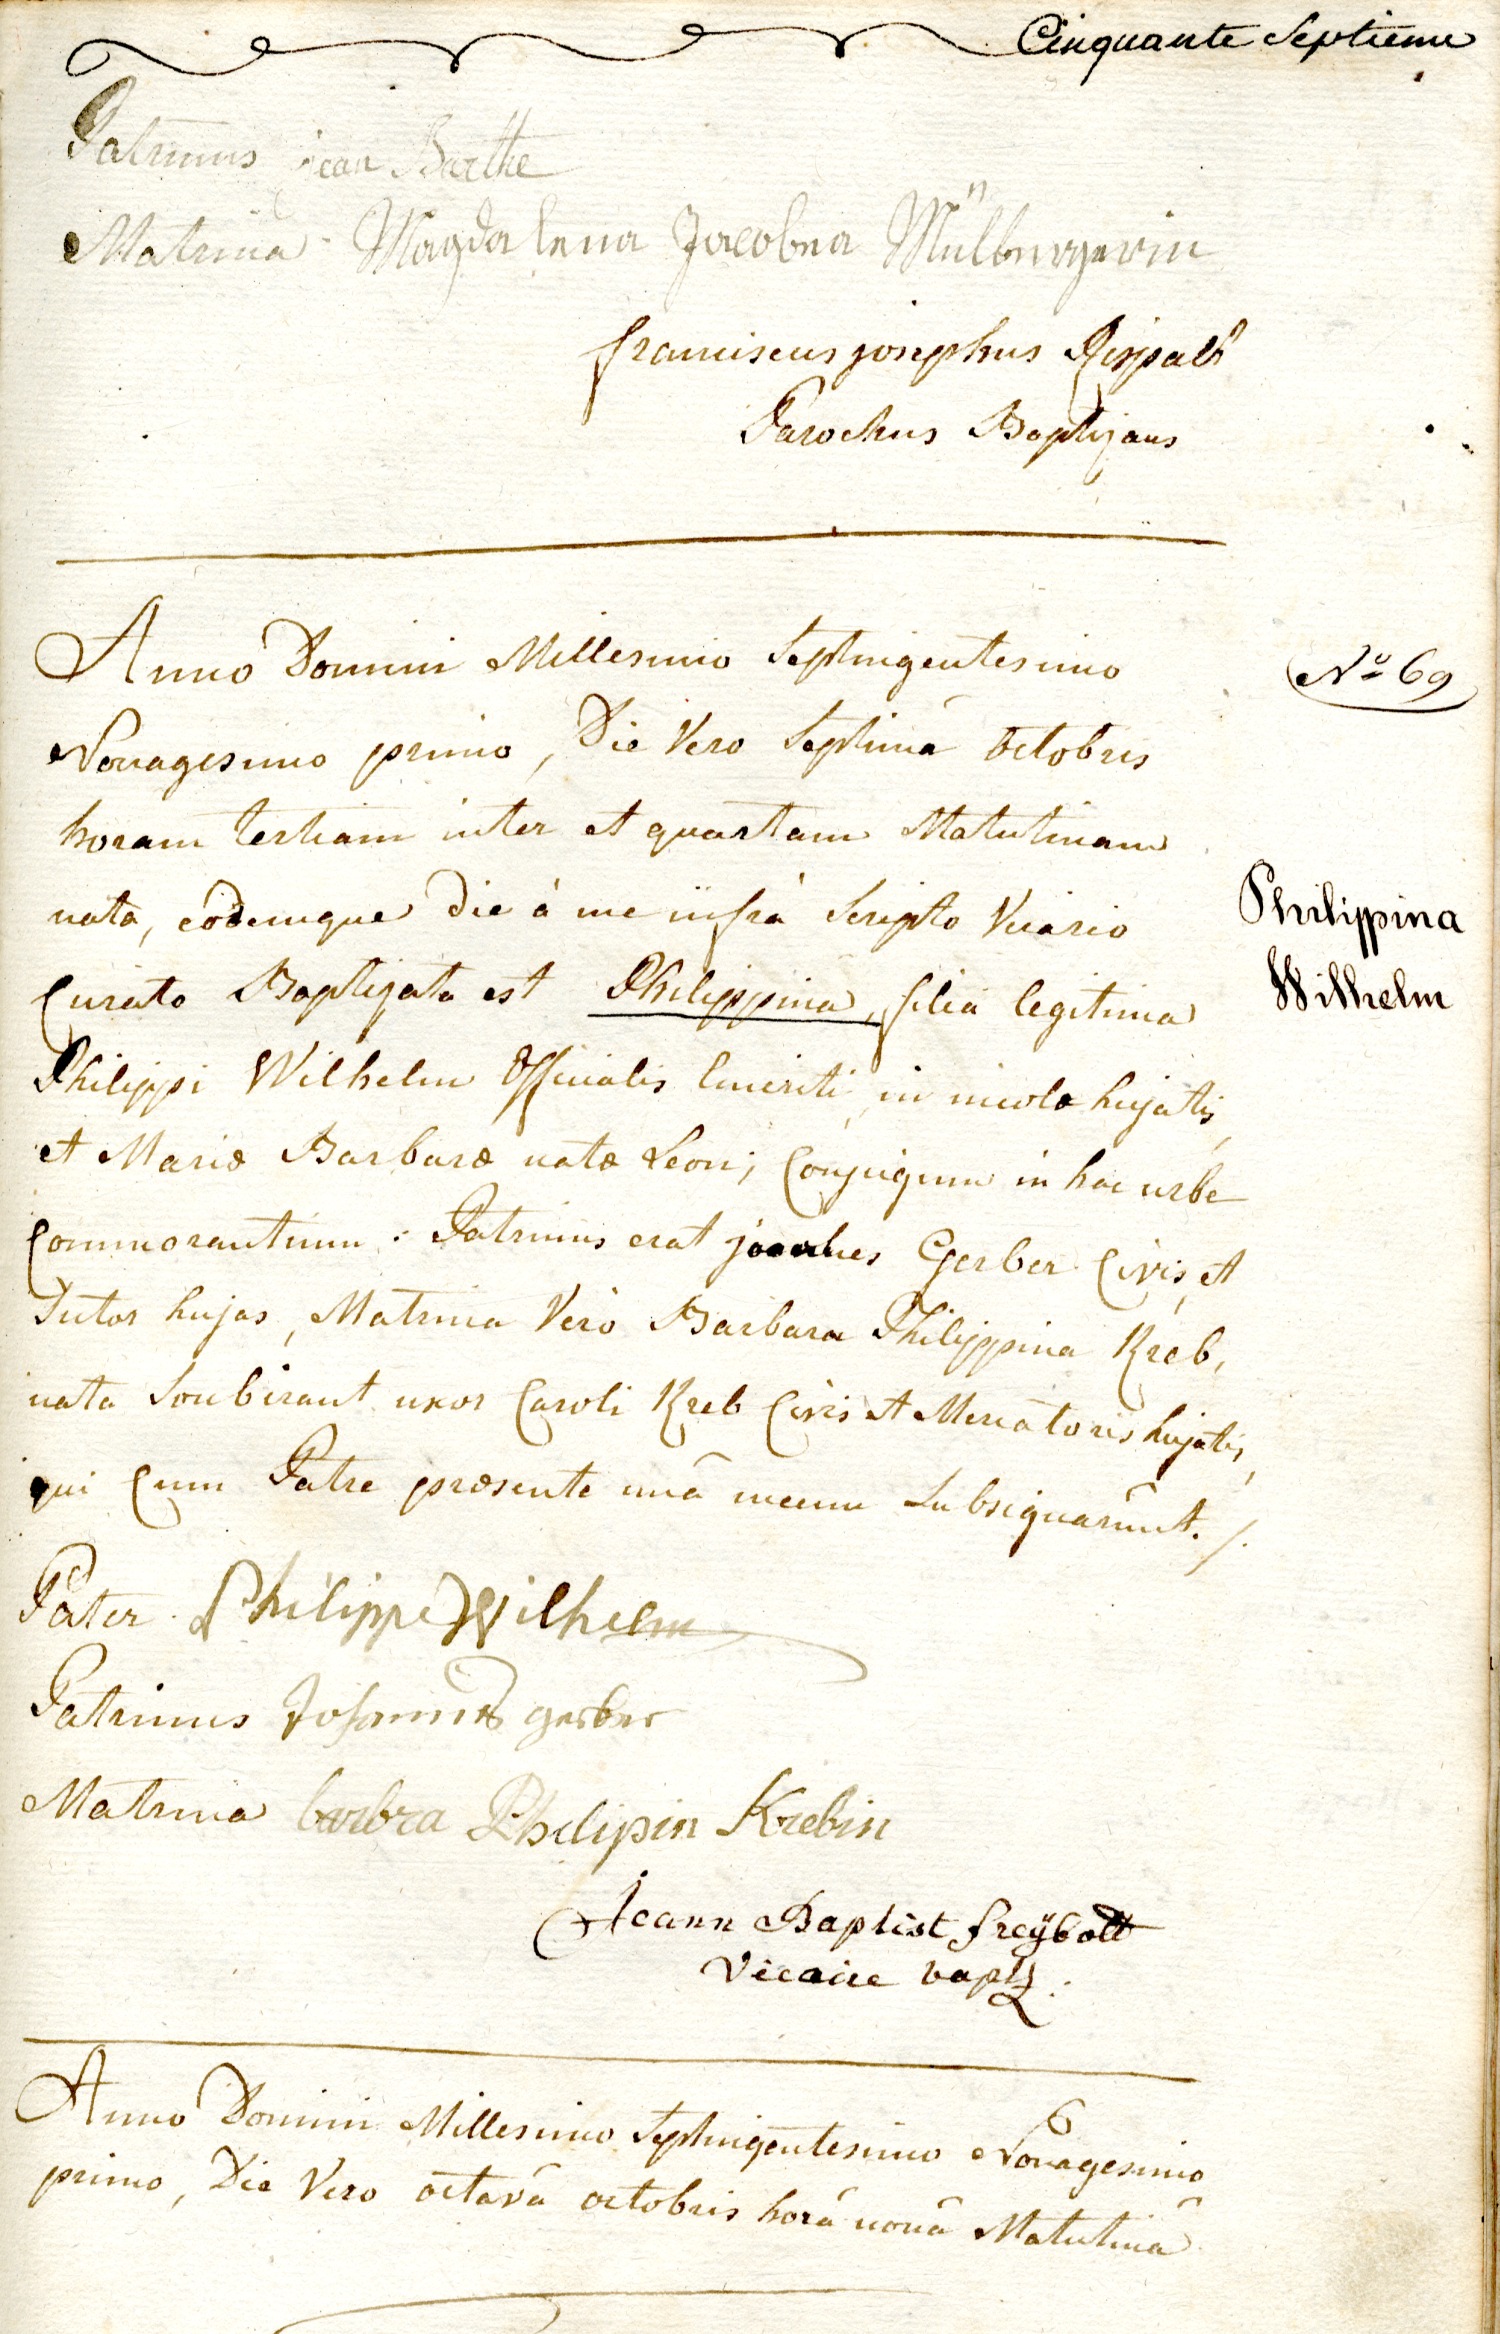 Cinquante Septieme
Patrinus jean Barthe
Matrina Magdalena Jacobea Mülbergerin
franciscus josephus
Parochus Baptizans
Anno Domini Millesimo Septingentesimo
Nº 69
Nonagesimo primo, Die Vero Septimâ octobris
horam tertiam inter et quartam Matutinam
nata, eodemque Die à me infrà Scripto Vicario
Philippina
Curato Baptizata est Philippina, filia legitima
Wilhelm
Philippi Wilhelm Officialis Emeriti, incolæ hujatis,
et Mariæ Barbaræ natæ Leon; Conjugum in hac urbe
Commorantium: Patrinus erat joannes Gerber Civis, et
Sutor hujas, Matrina Verò Barbara Philippina Kreb,
nata Soubirant uxor Caroli Kreb Civis et Mercatoris hujatis,
qui Cum Patre præsente unâ mecum Subsignarunt. /.
Pater Philippe Wilhelm
Patrinus Johannes gerber
Matrina barbra Philipin Krebin
Jeann Baptist freÿbott
Vicaire bapt:
Anno Domini Millesimo Septingentesimo Nonagesimo
primo, Die Vero octavâ octobris horâ nonâ Matutinâ